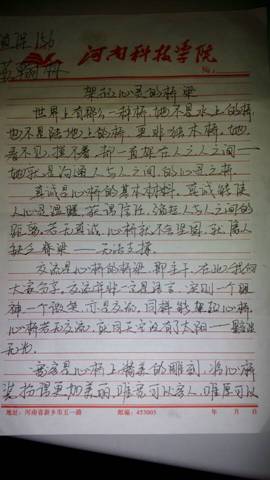 植保156
河南科技学院
№:
架起心灵的桥梁
世界上有那么一种桥,她不是水上的桥,
也不是陆地上的桥,更非独木桥,她
看不见,摸不着,却一直架在人之人之间——
她就是沟通人与人之间的心灵之桥
真诚是心桥的基本材料,真诚能使
人心里温暖,获得信任,缩短人与人之间的
距离,若无真诚,心桥就不会坚固,就属人
缺乏脊梁——无法支撑.
交流是心桥的桥梁,即主干,在此我同
大家分享,交流并非一定是语言,实则一个眼
神一个微笑,亦是交流,同样能架起心桥,
心桥若无交流,就同天空没有了太阳——黯淡
无光.
宽容是心桥上精美的雕刻,将心桥
装扮得更加美丽,唯宽可以容人,唯厚可以
地址:河南省新乡市五一路
邮编:453003
年 月 日